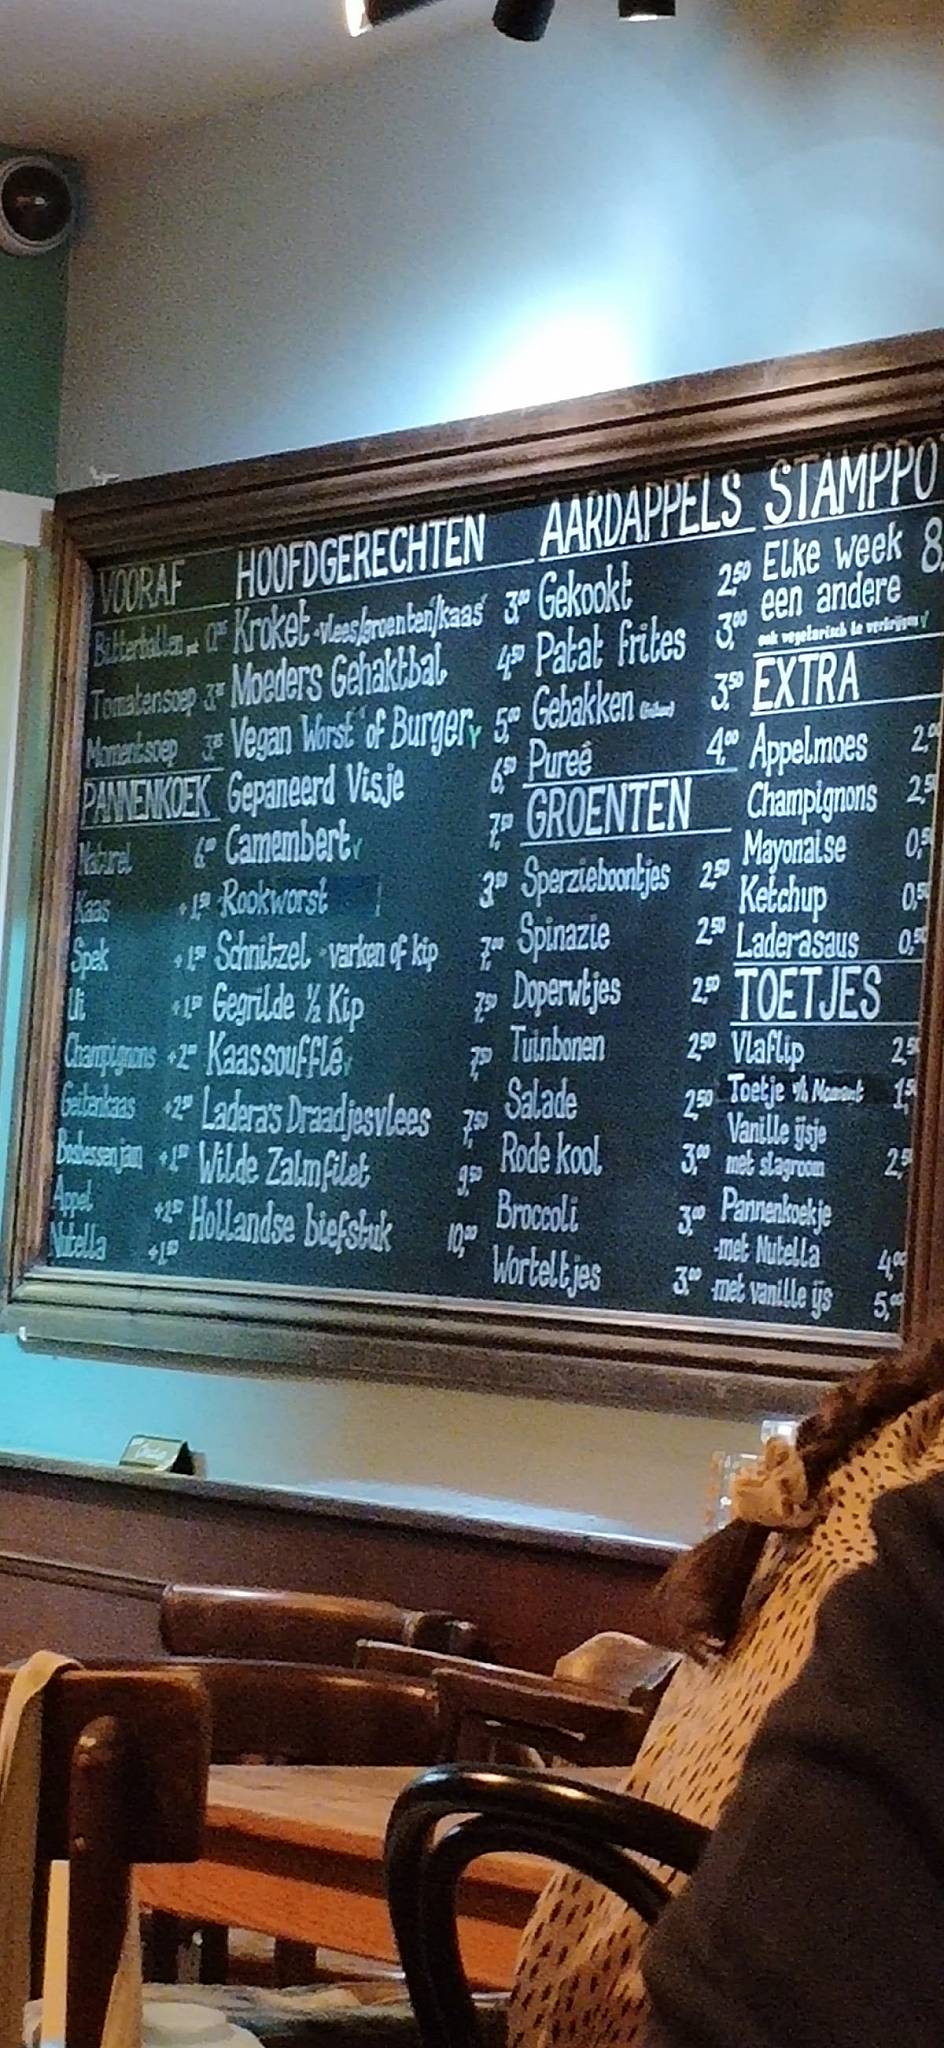 VOORAF
Bitterballen
Tomatensoep
Momentsoep
PANNENKOEK
Naturel 6,00
Kaas +1,50
Spek +1,50
Ui +1,50
Champignons +2,00
Geitenkaas +2,50
Bosbessenjam +1,50
Appel +1,50
Nutella +1,50
HOOFDGERECHTEN
Kroket -vlees/groenten/kaas 3,00
Moeders Gehaktbal 4,50
Vegan Worst of Burger 5,00
Gepaneerd Visje 6,50
Camembert 7,50
Rookworst 3,50
Schnitzel -varken of kip 7,00
Gegrilde ½ Kip 7,50
Kaassoufflé 7,50
Ladera's Draadjesvlees 7,50
Wilde Zalmfilet 9,50
Hollandse biefstuk 10,00
AARDAPPELS
Gekookt 2,50
Patat frites 3,00
Gebakken 3,50
Pureé 4,00
GROENTEN
Sperzieboontjes 2,50
Spinazie 2,50
Doperwtjes 2,50
Tuinbonen 2,50
Salade 2,50
Rode kool 3,00
Broccoli 3,00
Worteltjes 3,00
STAMPPO
Elke week 8,
een andere
ook vegetarisch te verkrijgen
EXTRA
Appelmoes 2,00
Champignons 2,50
Mayonaise 0,50
Ketchup 0,50
Laderasaus 0,50
TOETJES
Vlaflip 2,50
Toetje v/h Moment 1,50
Vanille ijsje
met slagroom 2,50
Pannenkoekje
-met Nutella 4,00
-met vanille ijs 5,00